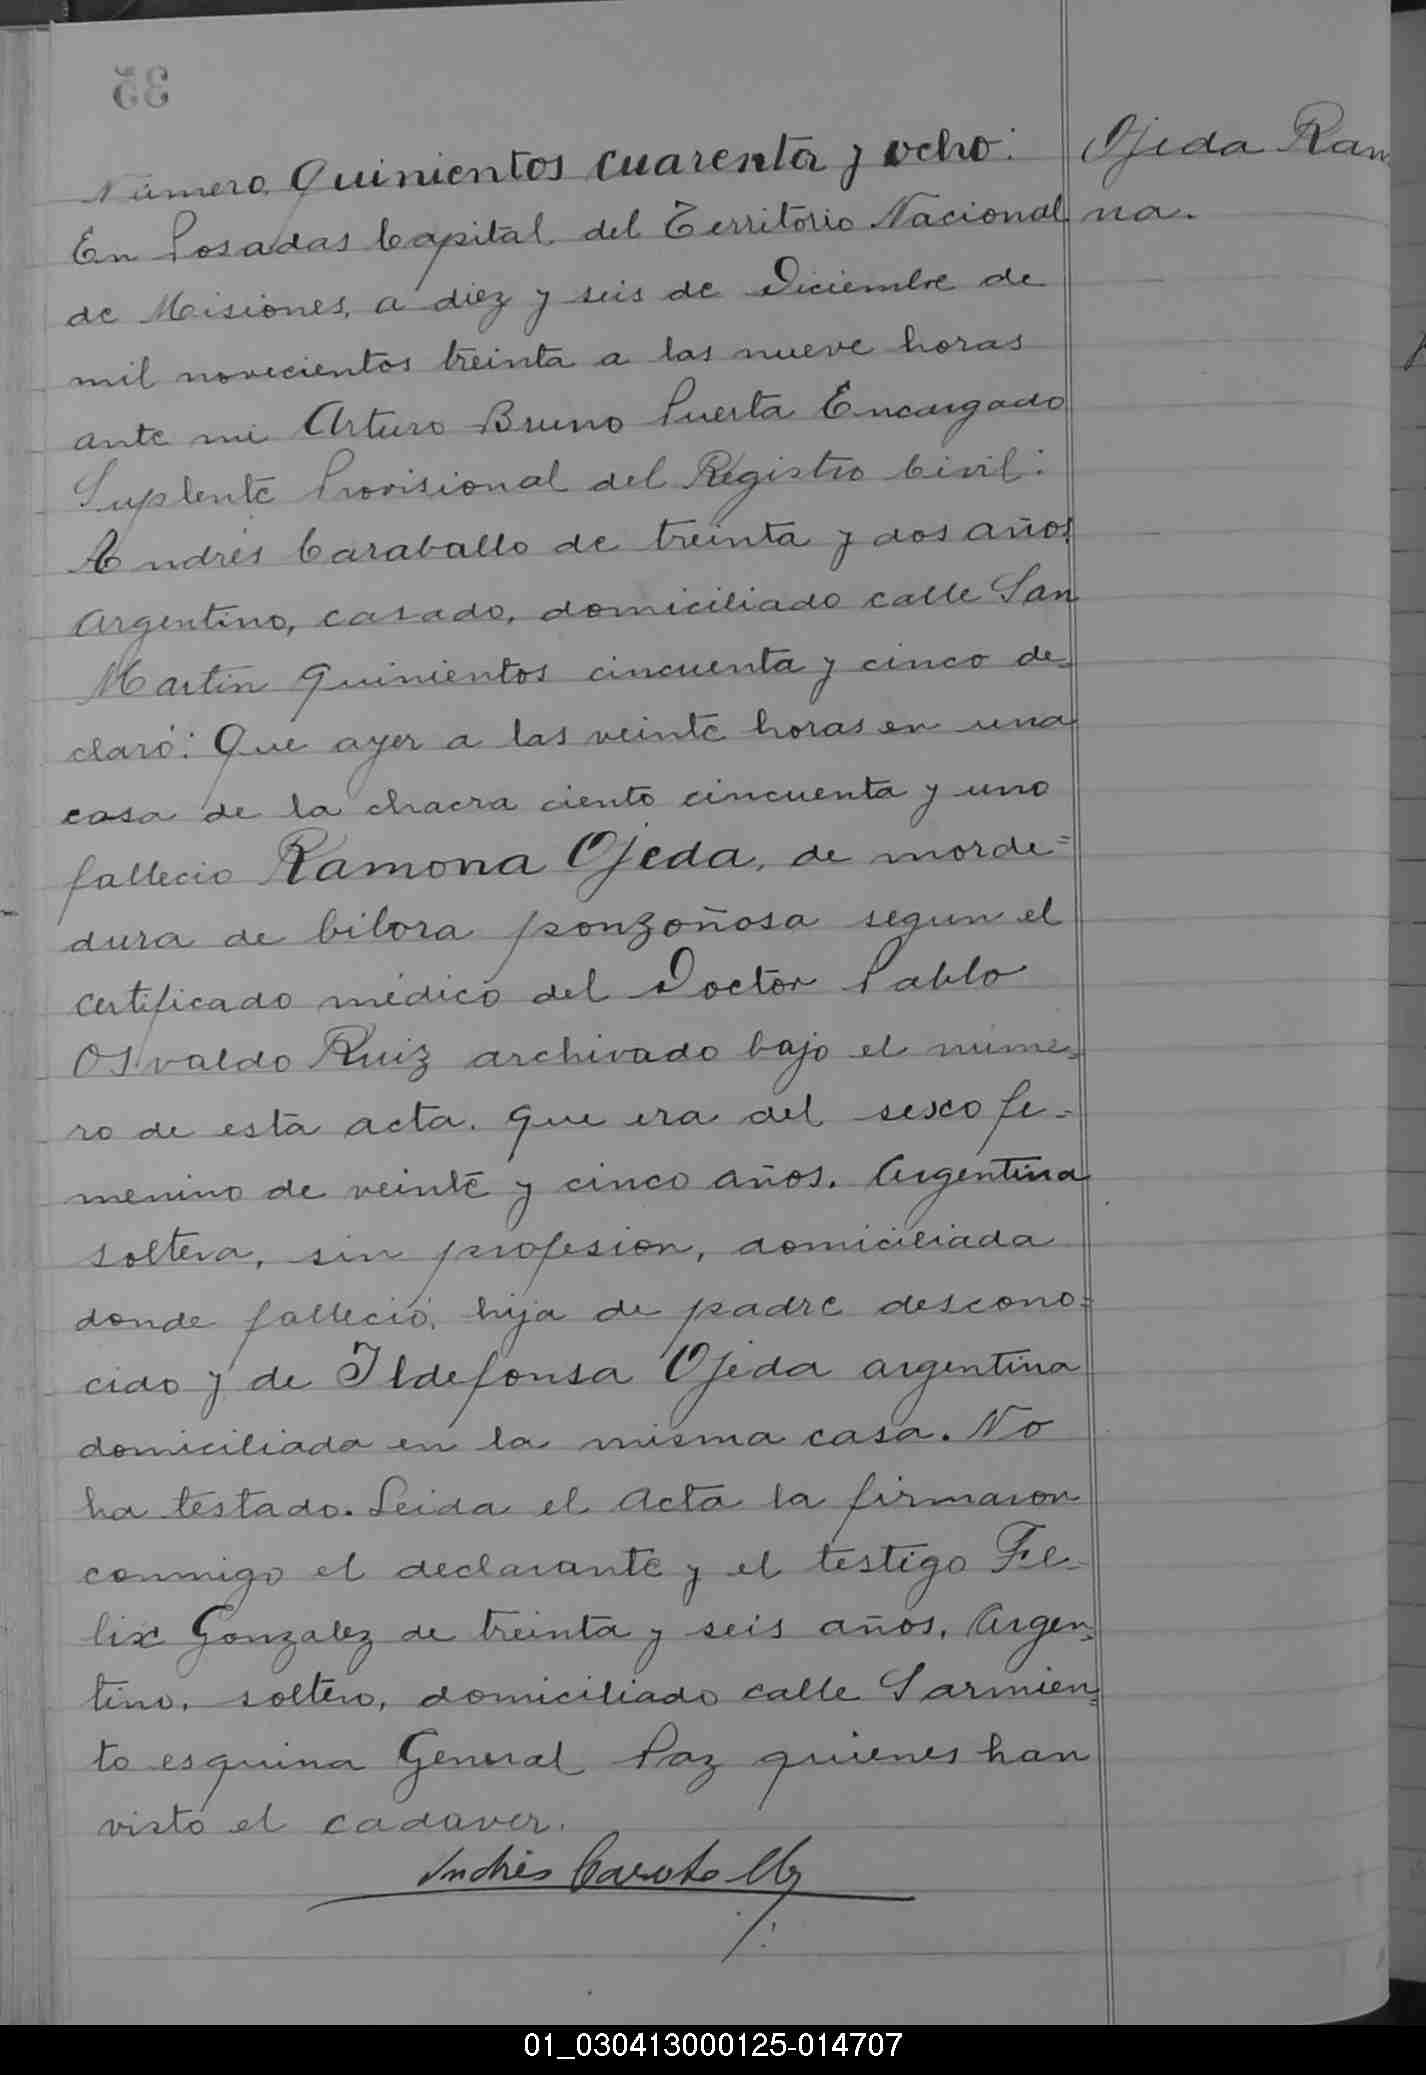 35
Número Quinientos cuarenta y ocho:
Ojeda Ramo
na.
En Posadas Capital del Territorio Nacional
de Misiones, a diez y seis de Diciembre de
mil novecientos treinta a las nueve horas
ante mi Arturo Bruno Puerta Encargado
Suplente Provisional del Registro Civil:
Andrés Caraballo de treinta y dos años,
Argentino, casado, domiciliado calle San
Martin Quinientos cincuenta y cinco de-
claró: Que ayer a las veinte horas en una
casa de la chacra ciento cincuenta y uno
fallecio Ramona Ojeda, de morde=
dura de bibora ponzoñosa segun el
certificado médico del Doctor Pablo
Osvaldo Ruiz archivado bajo el núme=
ro de esta acta. Que era del sexo fe-
menino de veinte y cinco años. Argentina
soltera, sin profesion, domiciliada
donde falleció, hija de padre descono=
cido y de Ildefonsa Ojeda argentina
domiciliada en la misma casa. No
ha testado. Leida el Acta la firmaron
conmigo el declarante y el testigo Fe-
lix Gonzalez de treinta y seis años, Argen=
tino, soltero, domiciliado calle Sarmien=
to esquina General Paz quienes han
visto el cadaver.
Andrés Caraballo
01_030413000125-014707